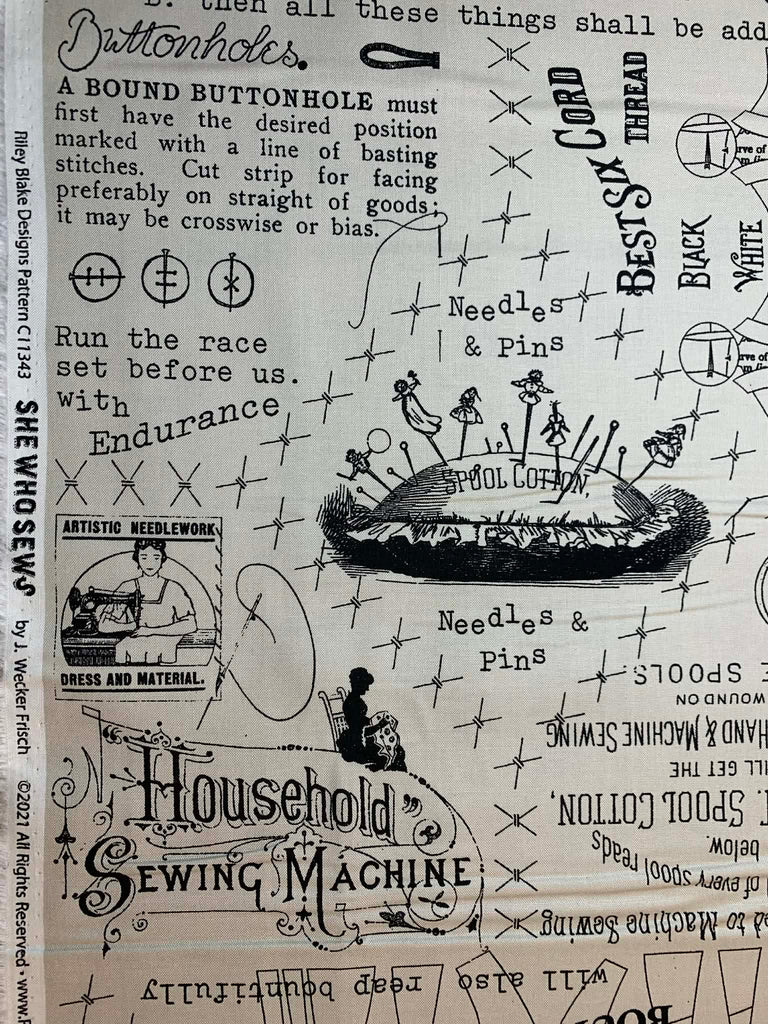 then all these things shall be add
Buttonholes.
A BOUND BUTTONHOLE must
first have the desired position
marked with a line of basting
stitches. Cut strip for facing
preferably on straight of goods;
it may be crosswise or bias.
Run the race
set before us.
with
Endurance
ARTISTIC NEEDLEWORK
DRESS AND MATERIAL.
Household
SEWING MACHINE
Needles
& Pins
SPOOL COTTON,
Needles &
Pins
BEST SIX CORD
THREAD
BLACK
WHITE
rve of
rve of
to Machine Sewing
of every spool reads
below.
SPOOL COTTON,
ILL GET THE
HAND & MACHINE SEWING
WOUND ON
SPOOLS.
will also reap bountifully
Riley Blake Designs Pattern C11343 SHE WHO SEWS by J. Wecker Frisch ©2021 All Rights Reserved • www.